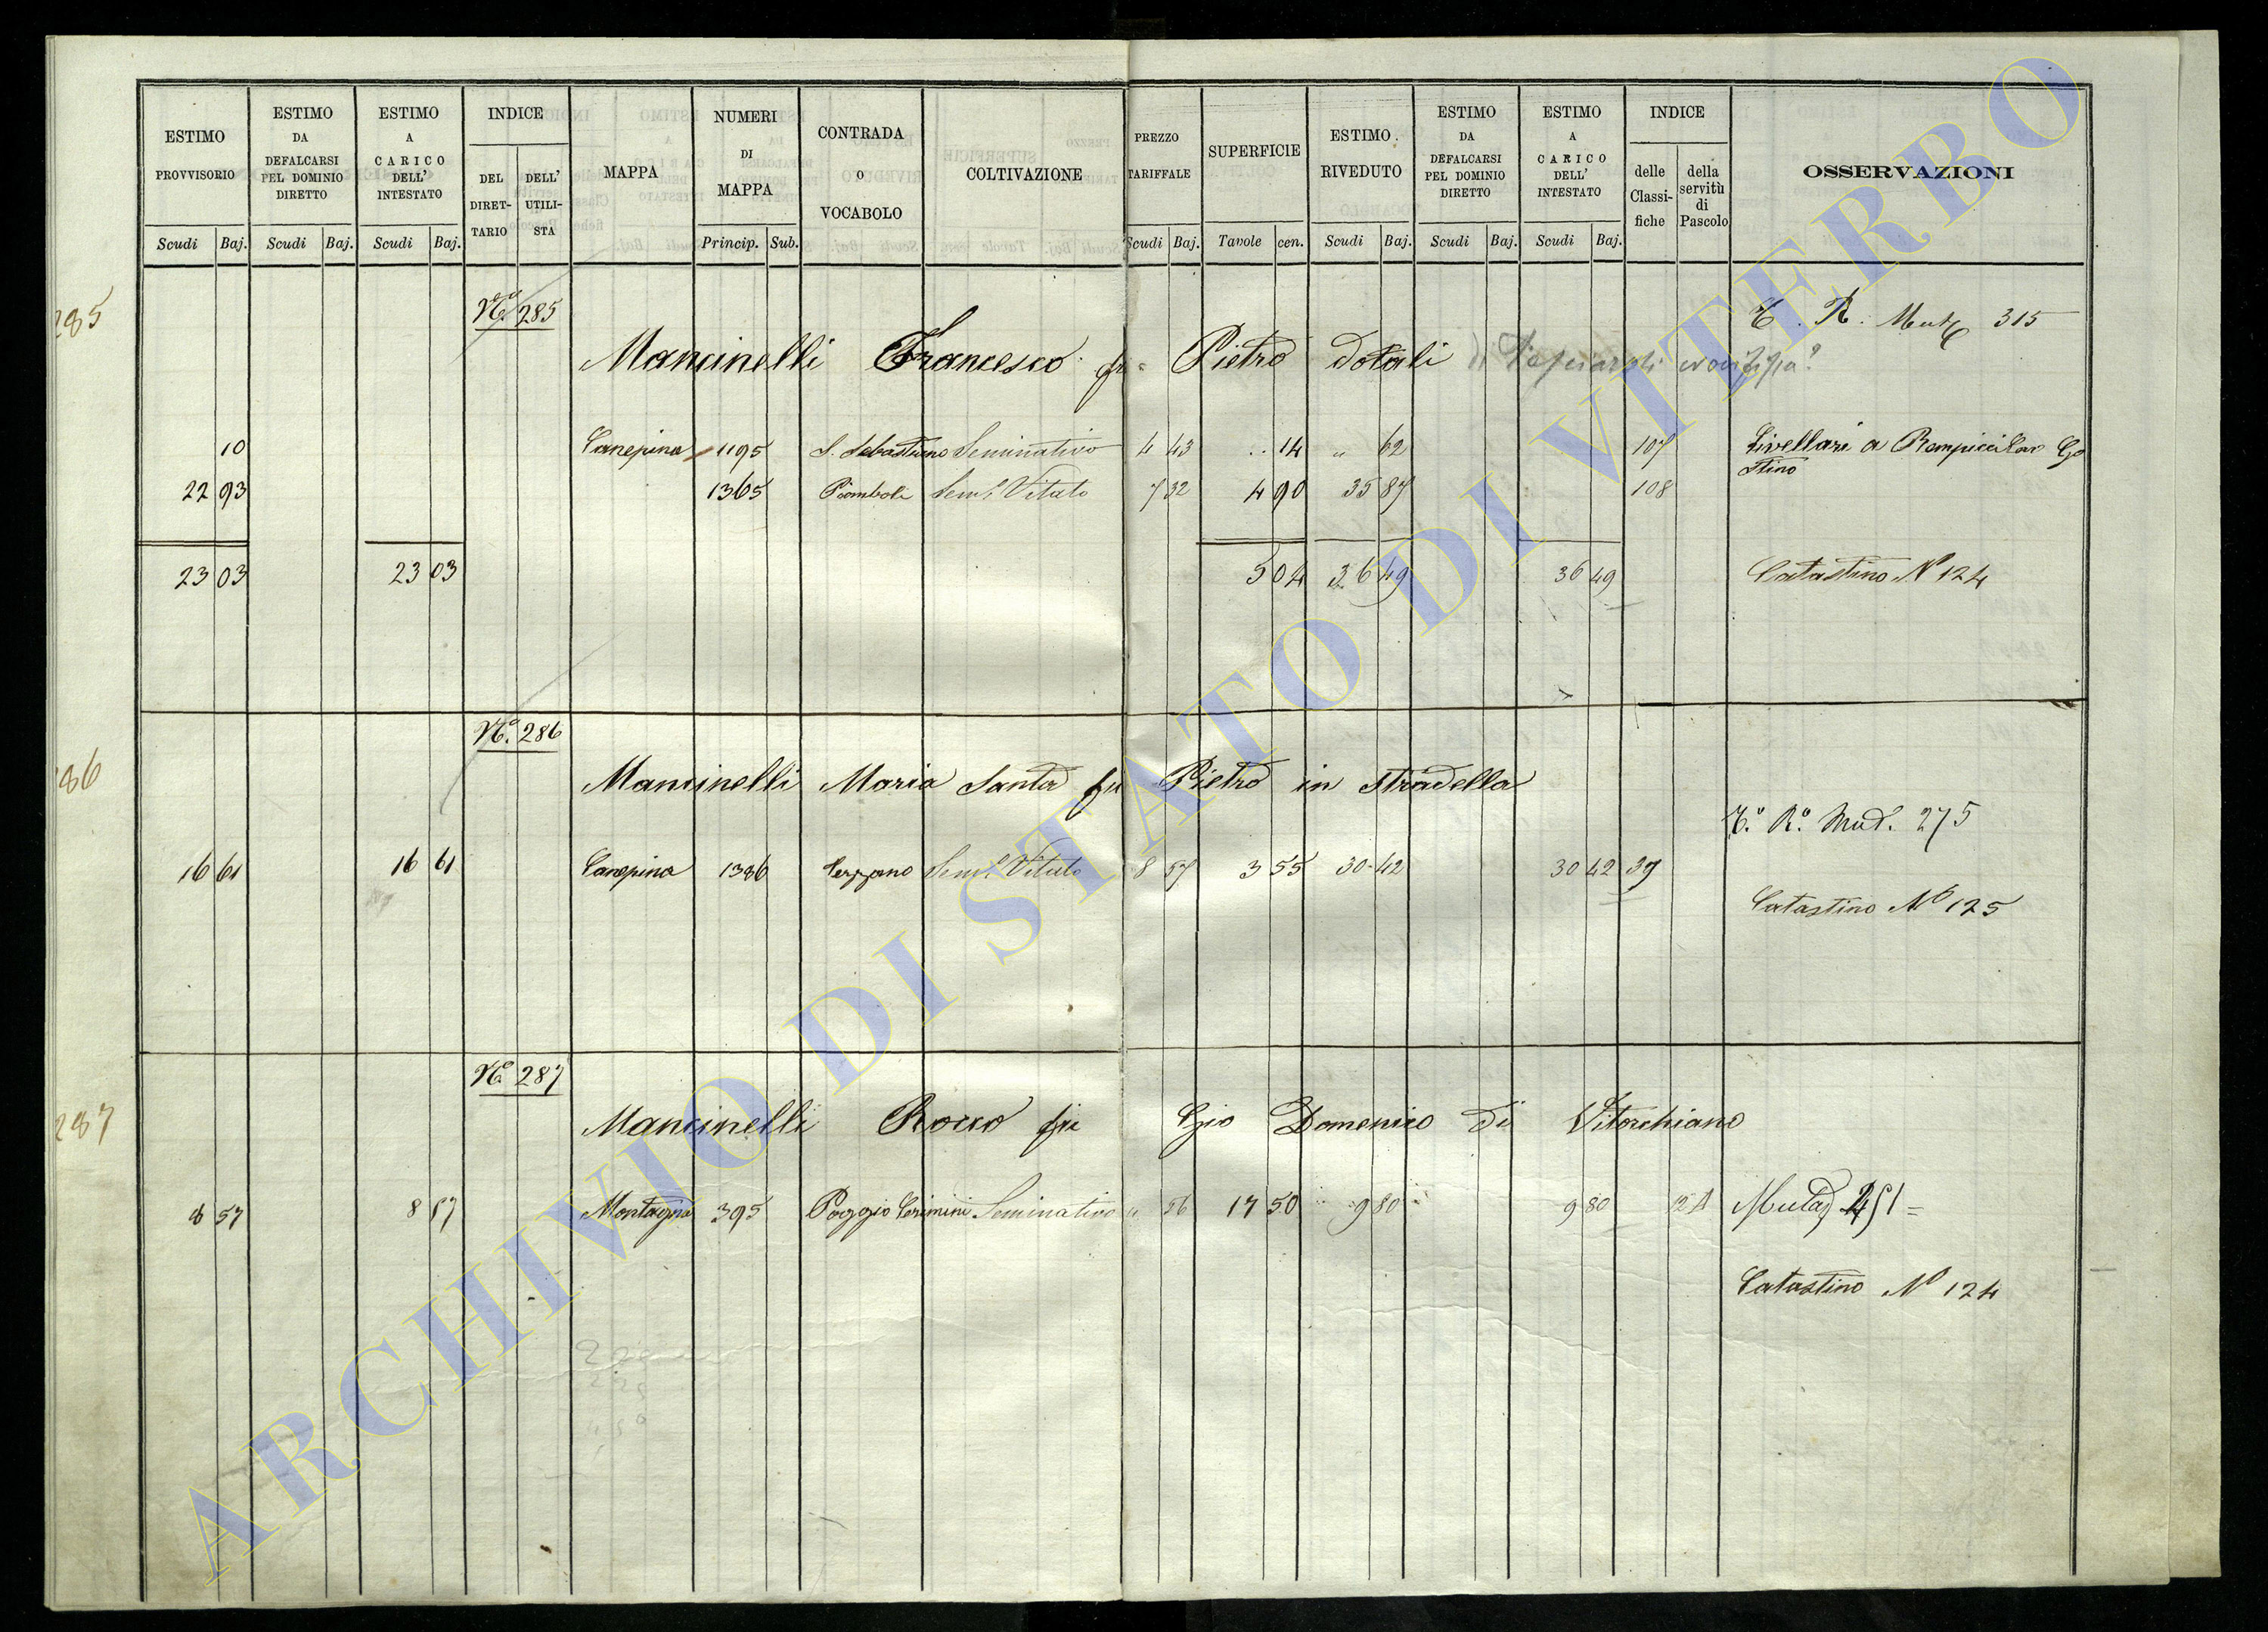 ESTIMO PROVVISORIO
ESTIMO DA DEFALCARSI PEL DOMINIO DIRETTO
ESTIMO A CARICO DELL' INTESTATO
INDICE
DEL DIRET-TARIO
DELL' UTILI-STA
MAPPA
NUMERI DI MAPPA
CONTRADA O VOCABOLO
COLTIVAZIONE
PREZZO TARIFFALE
SUPERFICIE
ESTIMO RIVEDUTO
ESTIMO DA DEFALCARSI PEL DOMINIO DIRETTO
ESTIMO A CARICO DELL' INTESTATO
INDICE
delle Classi-fiche
della servitù di Pascolo
OSSERVAZIONI
Scudi Baj. Scudi Baj. Scudi Baj. Princip. Sub. Scudi Baj. Tavole cen. Scudi Baj. Scudi Baj. Scudi Baj.
285
Nº 285
T. R. Mut 315
Mancinelli Francesco fu Pietro dotali
10 Canepina 1195 S. Sebastiano Seminativo 4 43 .. 14 " 62 107 Livellari a
stino
22 93 1365 Piomboli Semo Vitato 7 32 4 90 35 87 108
23 03 23 03 5 04 36 49 36 49 Catastino Nº 124
286
Nº 286
Mancinelli Maria Santa fu Pietro in Stradella
Tº Rº Mut. 275
16 61 16 61 Canepina 1386 Serzano Semo Vitato 8 57 3 55 30 42 30 42 39
Catastino Nº 125
287
Nº 287
Mancinelli Rocco fu Gio Domenico di Vitorchiano
8 57 8 57 Montagna 395 Poggio Cerimini Seminativo " 56 17 50 9 80 9 80
Catastino Nº 124
ARCHIVIO DI STATO DI VITERBO